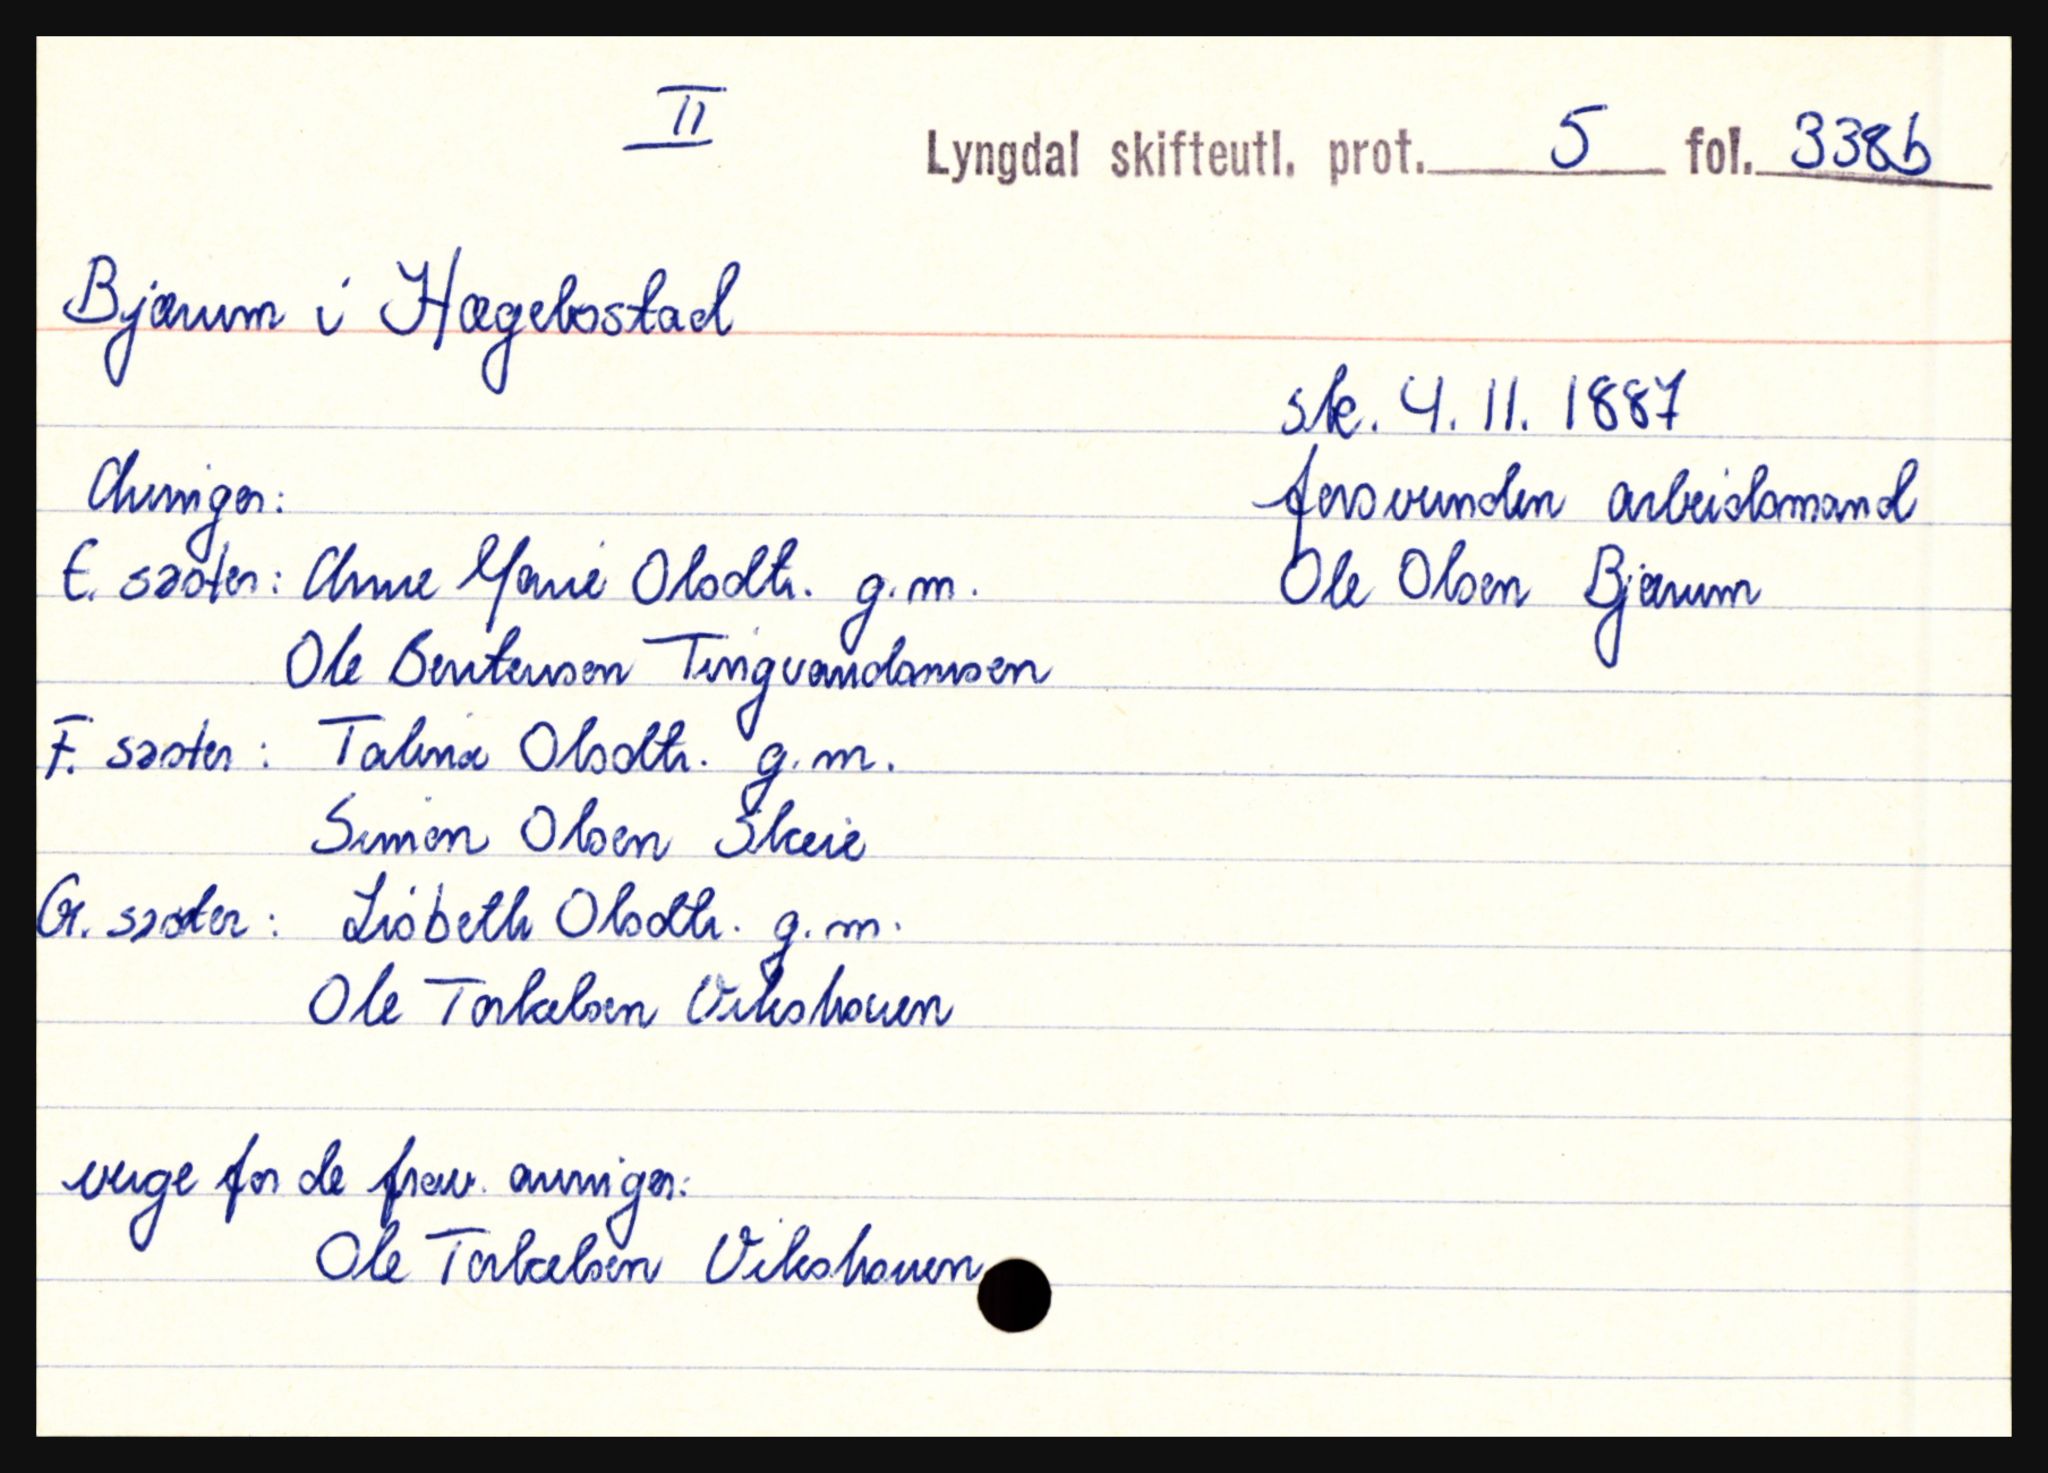 II
Lyngdal skifteutl. prot. 5 fol. 338b
Bjærum i Hægebostad
sk. 4.11.1887
forsvunden arbeidsmand
Ole Olsen Bjærum
Arvinger:
E. søster: Anne Marie Olsdtr. g.m.
Ole Bentensen Tingvandsmoen
F. søster: Talina Olsdtr. g.m.
Simon Olsen Skeie
G. søster: Lisbeth Olsdtr. g.m.
Ole Torkelsen Vikshauen
verge for de frav. arvinger:
Ole Torkelsen Vikshauen